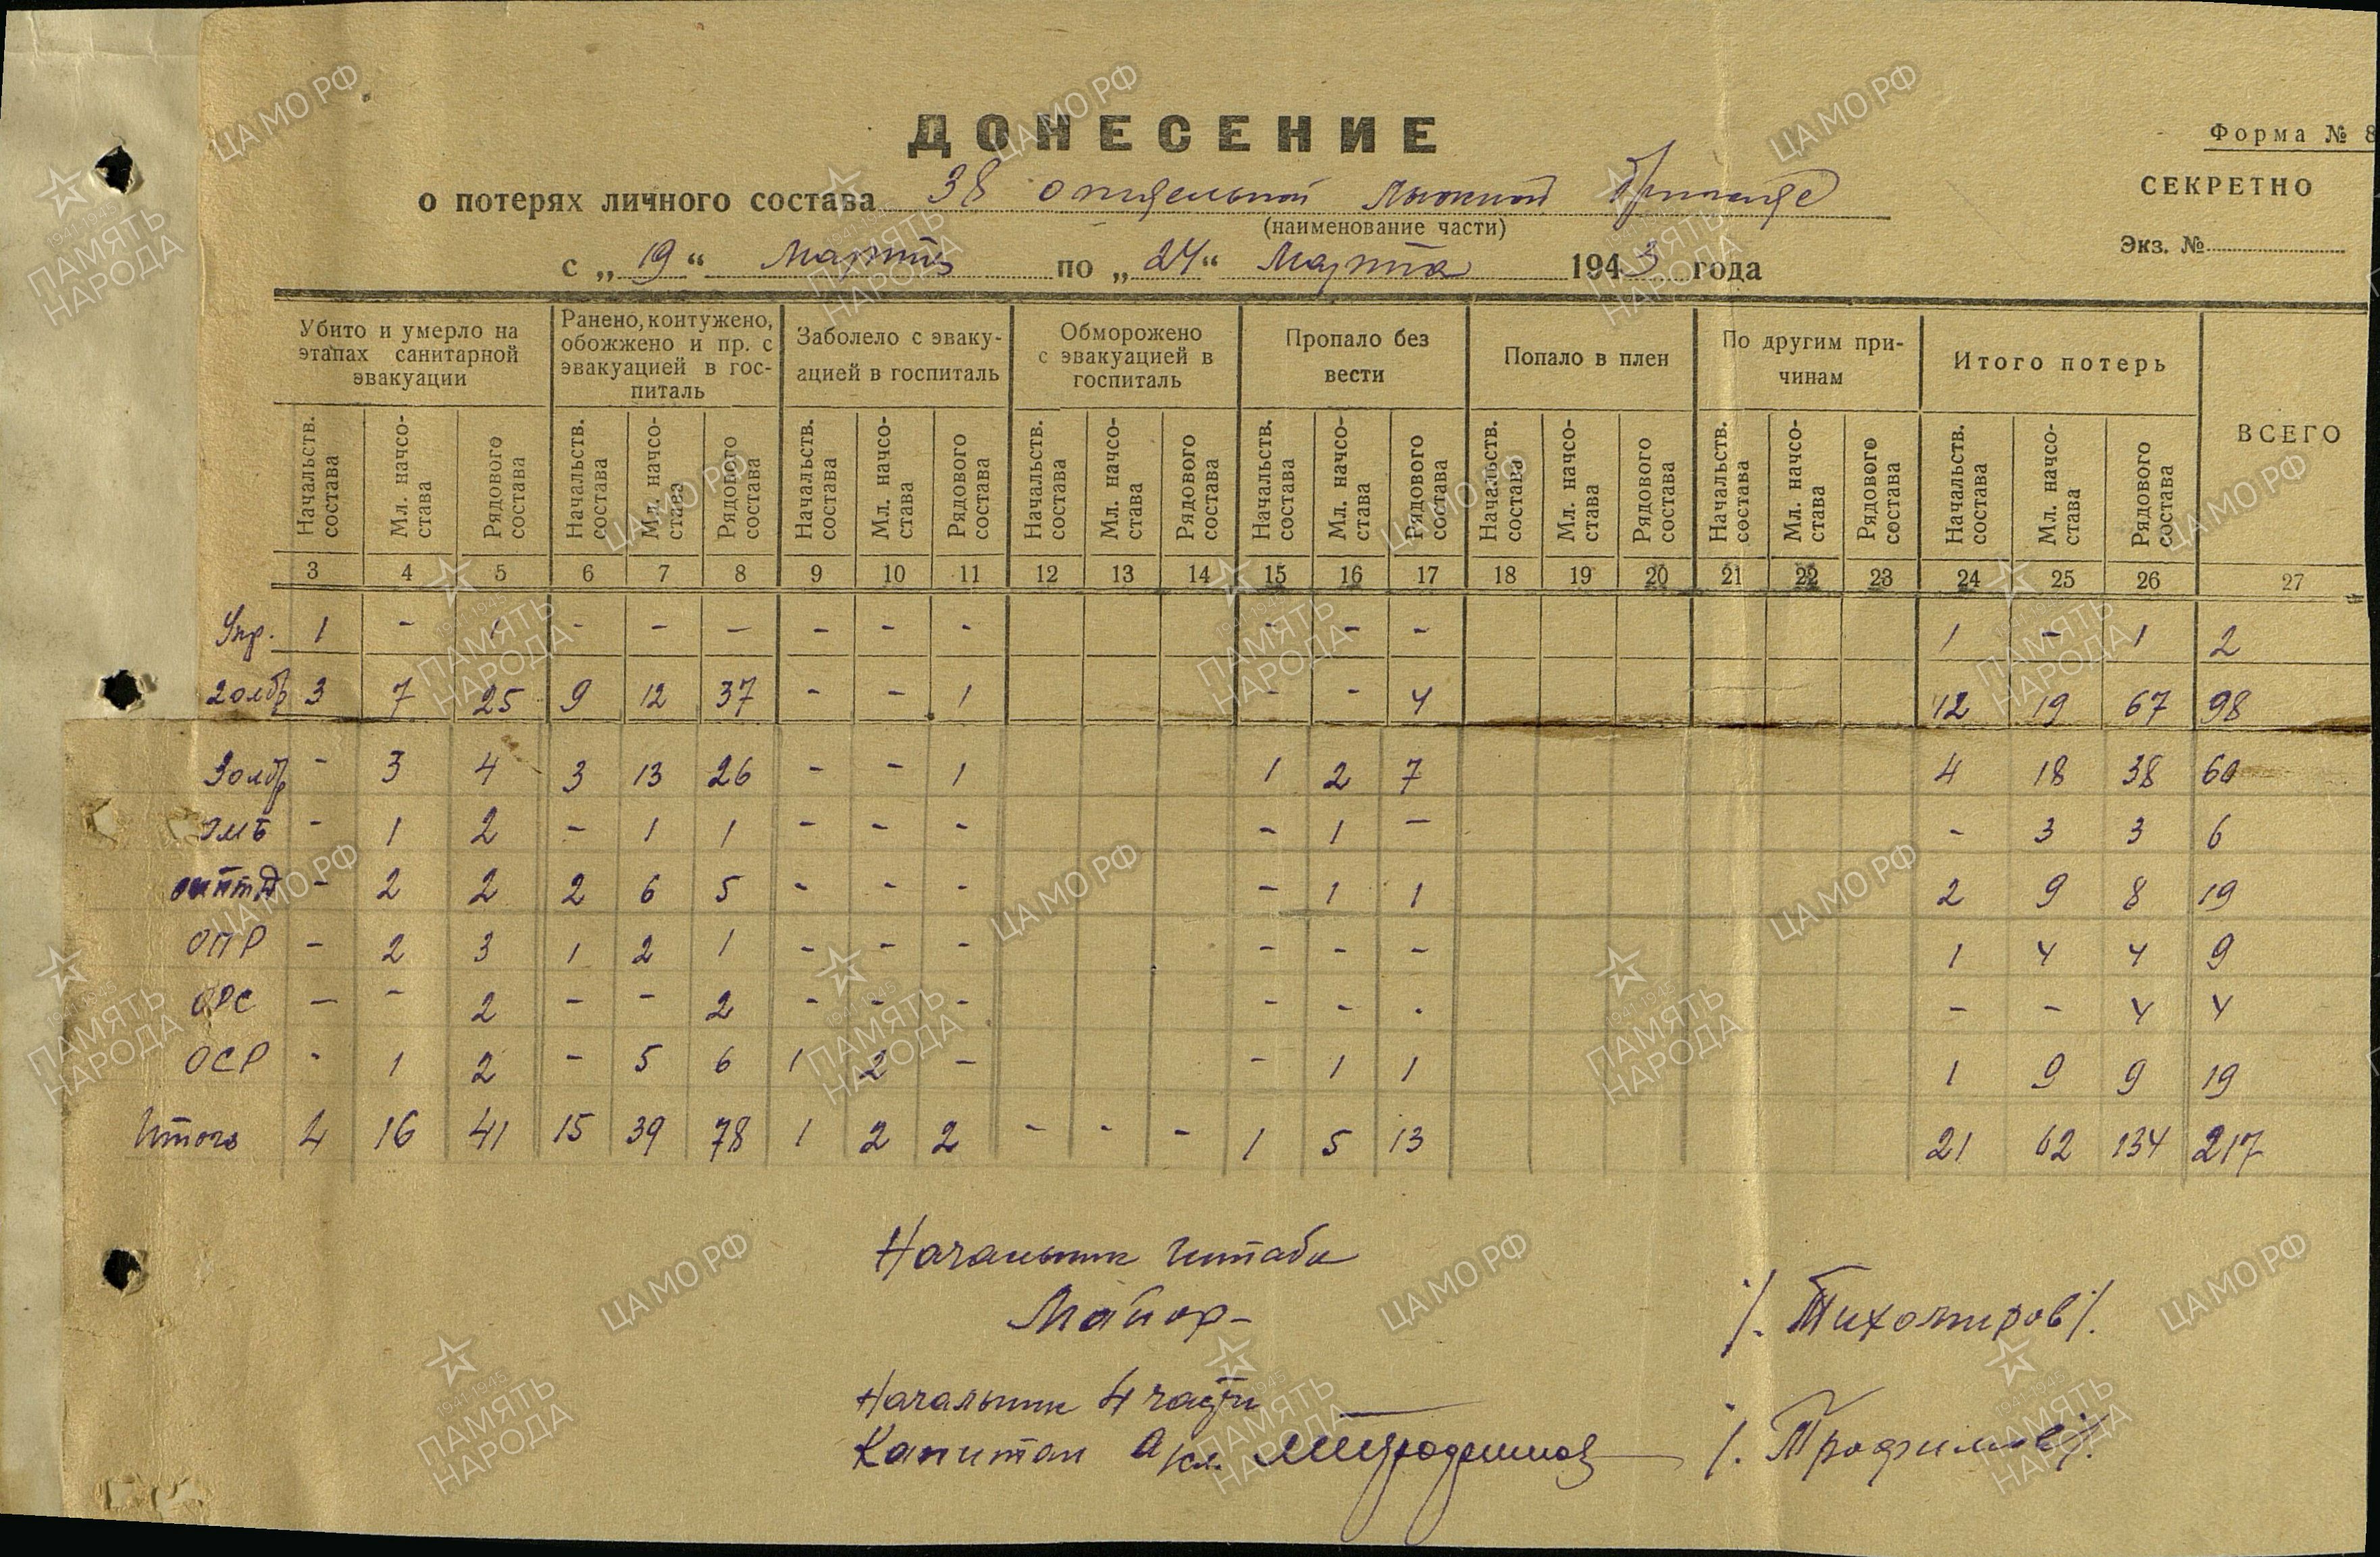 ДОНЕСЕНИЕ
Форма № 8
СЕКРЕТНО
Экз. №
о потерях личного состава 38 отдельной лыжной бригаде
(наименование части)
с „19“ Марта по „24“ Марта 1943 года
Убито и умерло на этапах санитарной эвакуации
Ранено, контужено, обожжено и пр. с эвакуацией в гос-питаль
Заболело с эваку-ацией в госпиталь
Обморожено с эвакуацией в госпиталь
Пропало без вести
Попало в плен
По другим при-чинам
Итого потерь
ВСЕГО
Начальств. состава Мл. начсо-става Рядового состава Начальств. состава Мл. начсо-става Рядового состава Начальств. состава Мл. начсо-става Рядового состава Начальств. состава Мл. начсо-става Рядового состава Начальств. состава Мл. начсо-става Рядового состава Начальств. состава Мл. начсо-става Рядового состава Начальств. состава Мл. начсо-става Рядового состава Начальств. состава Мл. начсо-става Рядового состава
3 4 5 6 7 8 9 10 11 12 13 14 15 16 17 18 19 20 21 22 23 24 25 26 27
Упр. 1 - 1 - - - - - - - - - 1 - 1 2
2олбр 3 7 25 9 12 37 - - 1 - - 4 12 19 67 98
3олбр - 3 4 3 13 26 - - 1 1 2 7 4 18 38 60
- 1 2 - 1 1 - - - - 1 - - 3 3 6
- 2 2 2 6 5 - - - - 1 1 2 9 8 19
ОПР - 2 3 1 2 1 - - - - - - 1 4 4 9
ОРС - - 2 - - 2 - - - - - - - - 4 4
ОСР - 1 2 - 5 6 1 2 - - 1 1 1 9 9 19
Итого 4 16 41 15 39 78 1 2 2 - - - 1 5 13 21 62 134 217
Начальник штаба
Майор- /. Тихомиров/.
Начальник 4 части
Капитан а/сл. /. Трофимов/.
ЦАМО РФ
1941-1945
ПАМЯТЬ НАРОДА